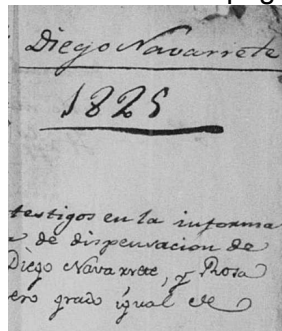 Diego Navarrete
1825
testigos en la informa
de dispensacion de
Diego Navarrete, y Rosa
ero grado igual de